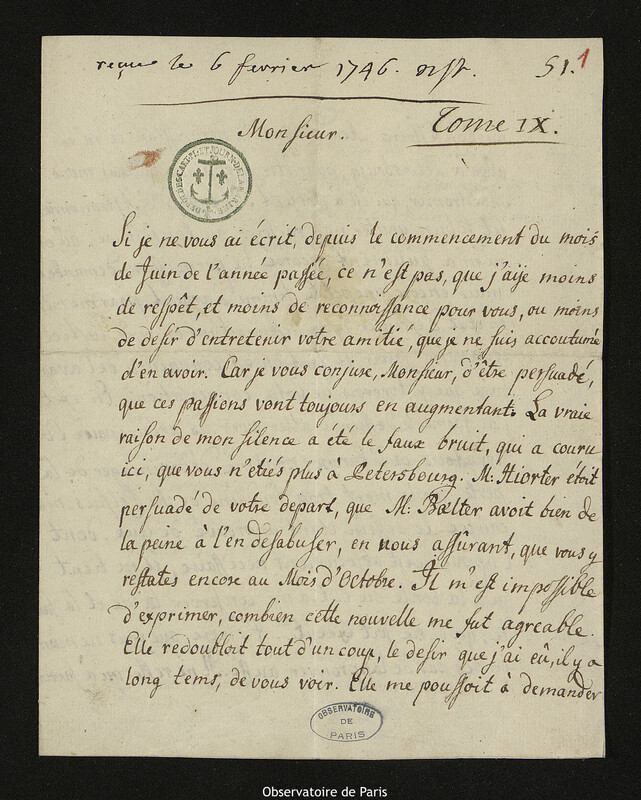 reçue le 6 fevrier 1746. nst. 51. 1
Monsieur. Tome IX.
DEPOT DES CARTES ET JOURN. DE LA MARINE
Si je ne vous ai écrit, depuis le commencement du mois
de Juin de l'année passée, ce n'est pas, que j'aije moins
de respêt, et moins de reconnoissance pour vous, ou moins
de desir d'entretenir votre amitié, que je ne suis accoutumée
d'en avoir. Car je vous conjure, Monsieur, d'être persuadé,
que ces passions vont toujours en augmentant. La vraie
raison de mon silence a été le faux bruit, qui a couru
ici, que vous n'etiés plus à Petersbourg. M: Hiorter étoit
persuadé de votre depart, que M: Bælter avoit bien de
la peine à l'en desabuser, en nous assûrant, que vous y
restates encore au Mois d'Octobre. Il m'est impossible
d'exprimer, combien cette nouvelle me fut agreable.
Elle redoubloit tout d'un coup, le desir que j'ai eû, il y a
long tems, de vous voir. Elle me poussoit à demander
OBSERVATOIRE
DE
PARIS
Observatoire de Paris